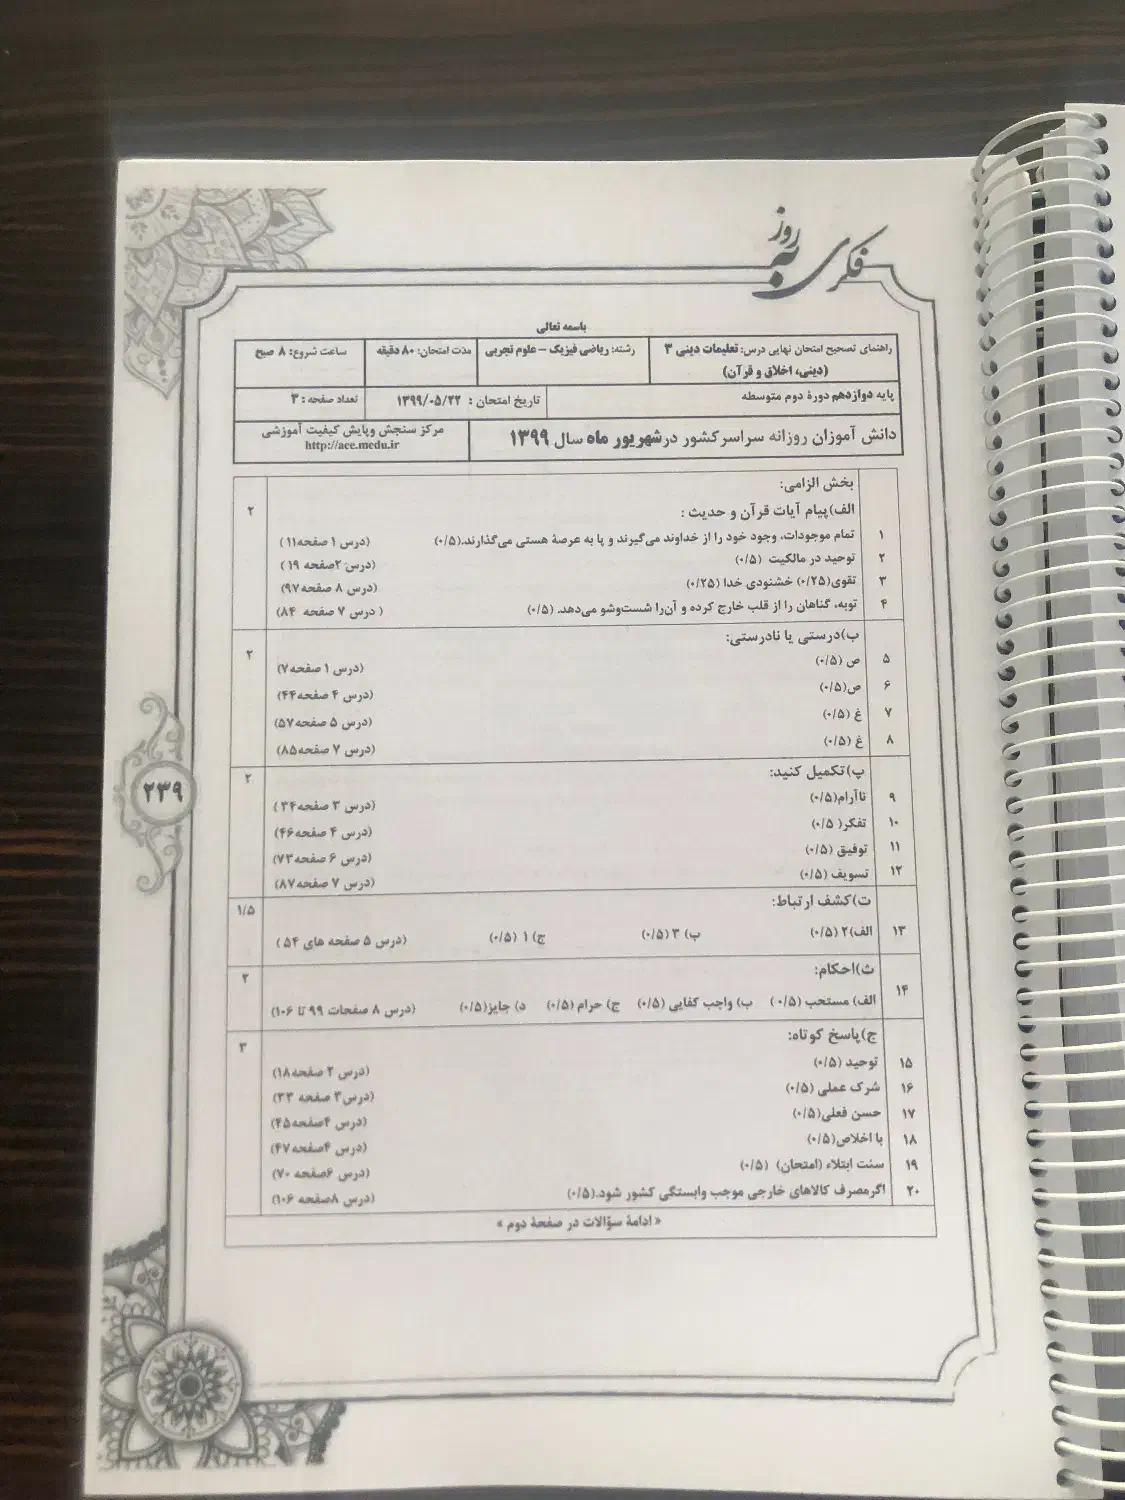 فکری به روز
باسمه تعالی
راهنمای تصحیح امتحان نهایی درس: تعلیمات دینی ۳ (دینی، اخلاق و قرآن) رشته: ریاضی فیزیک – علوم تجربی مدت امتحان: ۸۰ دقیقه ساعت شروع: ۸ صبح
پایه دوازدهم دورهٔ دوم متوسطه تاریخ امتحان : ۱۳۹۹/۰۵/۲۲ تعداد صفحه : ۳
دانش آموزان روزانه سراسر کشور در شهریور ماه سال ۱۳۹۹ مرکز سنجش وپایش کیفیت آموزشی
http://ace.medu.ir
بخش الزامی:
الف)پیام آیات قرآن و حدیث : ۲
۱ تمام موجودات، وجود خود را از خداوند می‌گیرند و پا به عرصهٔ هستی می‌گذارند.(۰/۵) (درس ۱ صفحه۱۱)
۲ توحید در مالکیت (۰/۵) (درس ۲صفحه ۱۹)
۳ تقوی(۰/۲۵) خشنودی خدا (۰/۲۵) (درس ۸ صفحه۹۷)
۴ توبه، گناهان را از قلب خارج کرده و آن‌را شست‌وشو می‌دهد. (۰/۵) ( درس ۷ صفحه ۸۴)
ب)درستی یا نادرستی: ۲
۵ ص (۰/۵) (درس ۱ صفحه۷)
۶ ص(۰/۵) (درس ۴ صفحه۴۴)
۷ غ (۰/۵) (درس ۵ صفحه۵۷)
۸ غ (۰/۵) (درس ۷ صفحه۸۵)
پ)تکمیل کنید: ۲
۹ ناآرام(۰/۵) (درس ۳ صفحه۳۴)
۱۰ تفکر( ۰/۵) (درس ۴ صفحه۴۶)
۱۱ توفیق (۰/۵) (درس ۶ صفحه۷۳)
۱۲ تسویف (۰/۵) (درس ۷ صفحه۸۷)
ت)کشف ارتباط: ۱/۵
۱۳ الف)۲ (۰/۵) ب) ۳ (۰/۵) ج) ۱ (۰/۵) (درس ۵ صفحه های ۵۴)
ث)احکام: ۲
۱۴ الف) مستحب (۰/۵) ب) واجب کفایی (۰/۵) ج) حرام (۰/۵) د) جایز(۰/۵) (درس ۸ صفحات ۹۹ تا ۱۰۶)
ج)پاسخ کوتاه: ۳
۱۵ توحید (۰/۵) (درس ۲ صفحه۱۸)
۱۶ شرک عملی (۰/۵) (درس۳ صفحه ۳۳)
۱۷ حسن فعلی(۰/۵) (درس ۴صفحه۴۵)
۱۸ با اخلاص(۰/۵) (درس ۴صفحه۴۷)
۱۹ سنت ابتلاء (امتحان) (۰/۵) (درس ۶صفحه ۷۰)
۲۰ اگرمصرف کالاهای خارجی موجب وابستگی کشور شود.(۰/۵) (درس ۸صفحه ۱۰۶)
« ادامهٔ سؤالات در صفحهٔ دوم »
۲۳۹